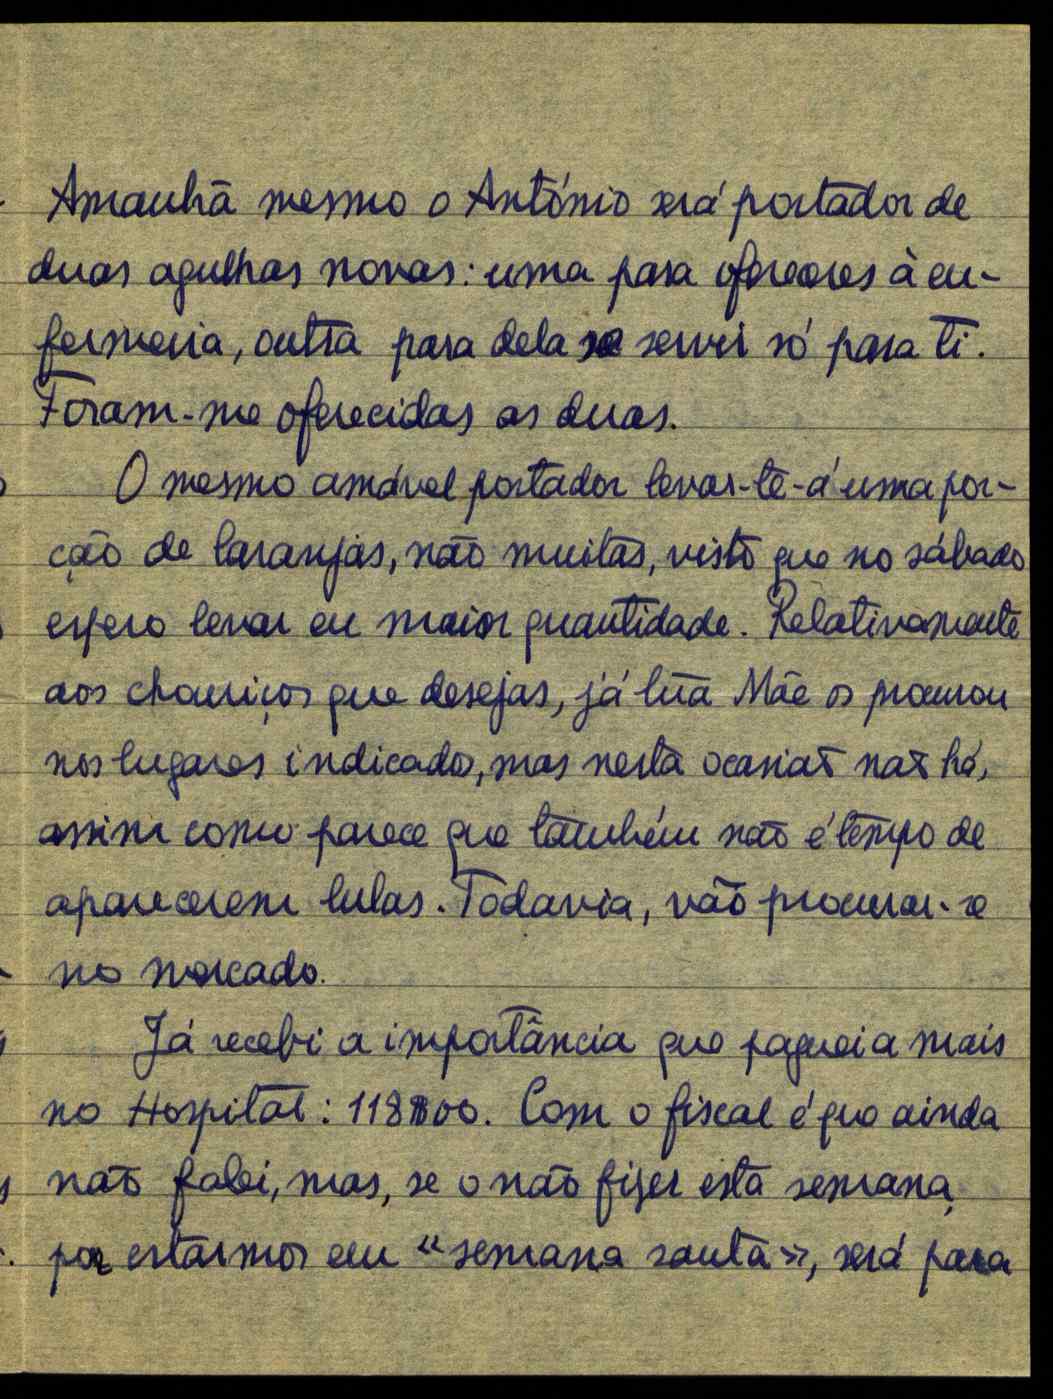 Amanhã mesmo o António será portador de
duas agulhas novas: uma para ofereceres à en-
fermeira, outra para dela se servir só para ti.
Foram-me oferecidas as duas.
O mesmo amável portador levar-te-á uma por-
ção de laranjas, não muitas, visto que no sábado
espero levar eu maior quantidade. Relativamente
aos chouriços que desejas, já tua Mãe os procurou
nos lugares indicados, mas nesta ocasião não há,
assim como parece que também não é tempo de
aparecerem lulas. Todavia, vão procurar-se
no mercado.
Já recebi a importância que paguei a mais
no Hospital: 118$00. Com o fiscal é que ainda
não falei, mas, se o não fizer esta semana,
por estarmos em «semana santa», será para